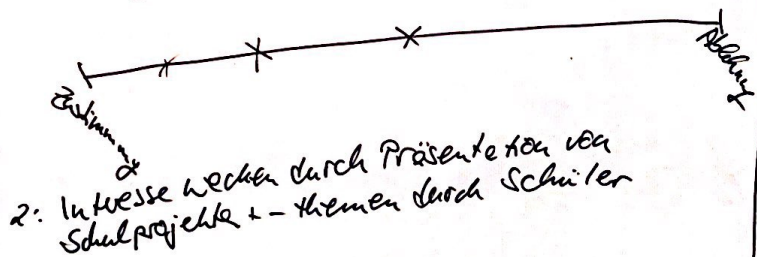 Zustimmung
Ablehnung
2: Interesse wecken durch Präsentation von
Schulprojekte + -themen durch Schüler